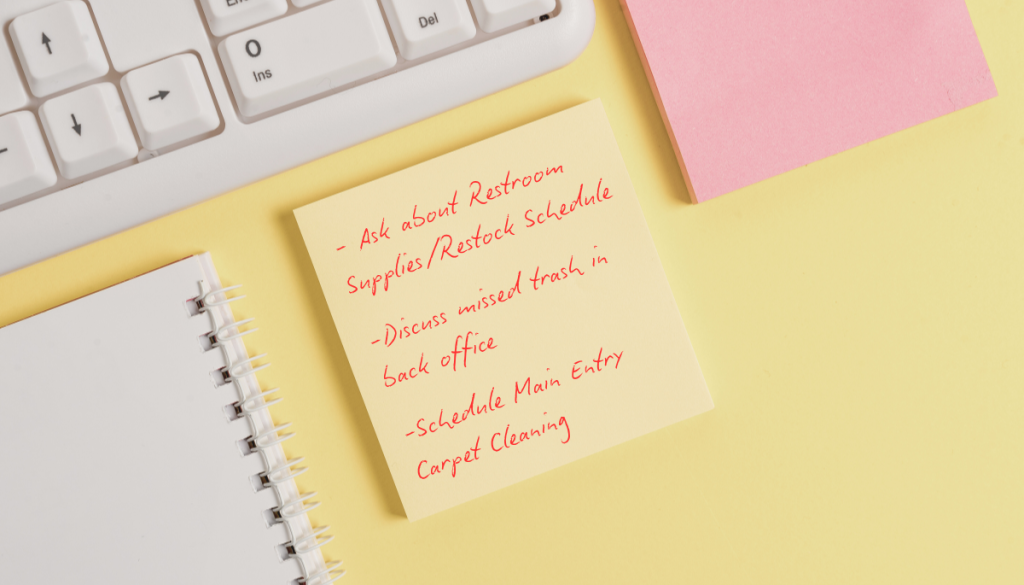 En
Del
0
Ins
- Ask about Restroom
Supplies/Restock Schedule
-Discuss missed trash in
back office
-Schedule Main Entry
Carpet Cleaning